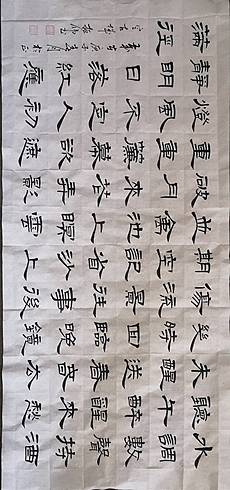 水調數聲持酒
聽午醉醒來愁
未醒送春春去
幾時回臨晚鏡
傷流景往事後
期空記省沙上
並禽池上暝雲
破月來花弄影
重重簾幕密遮
燈風不定人初
靜明日落紅應
滿徑